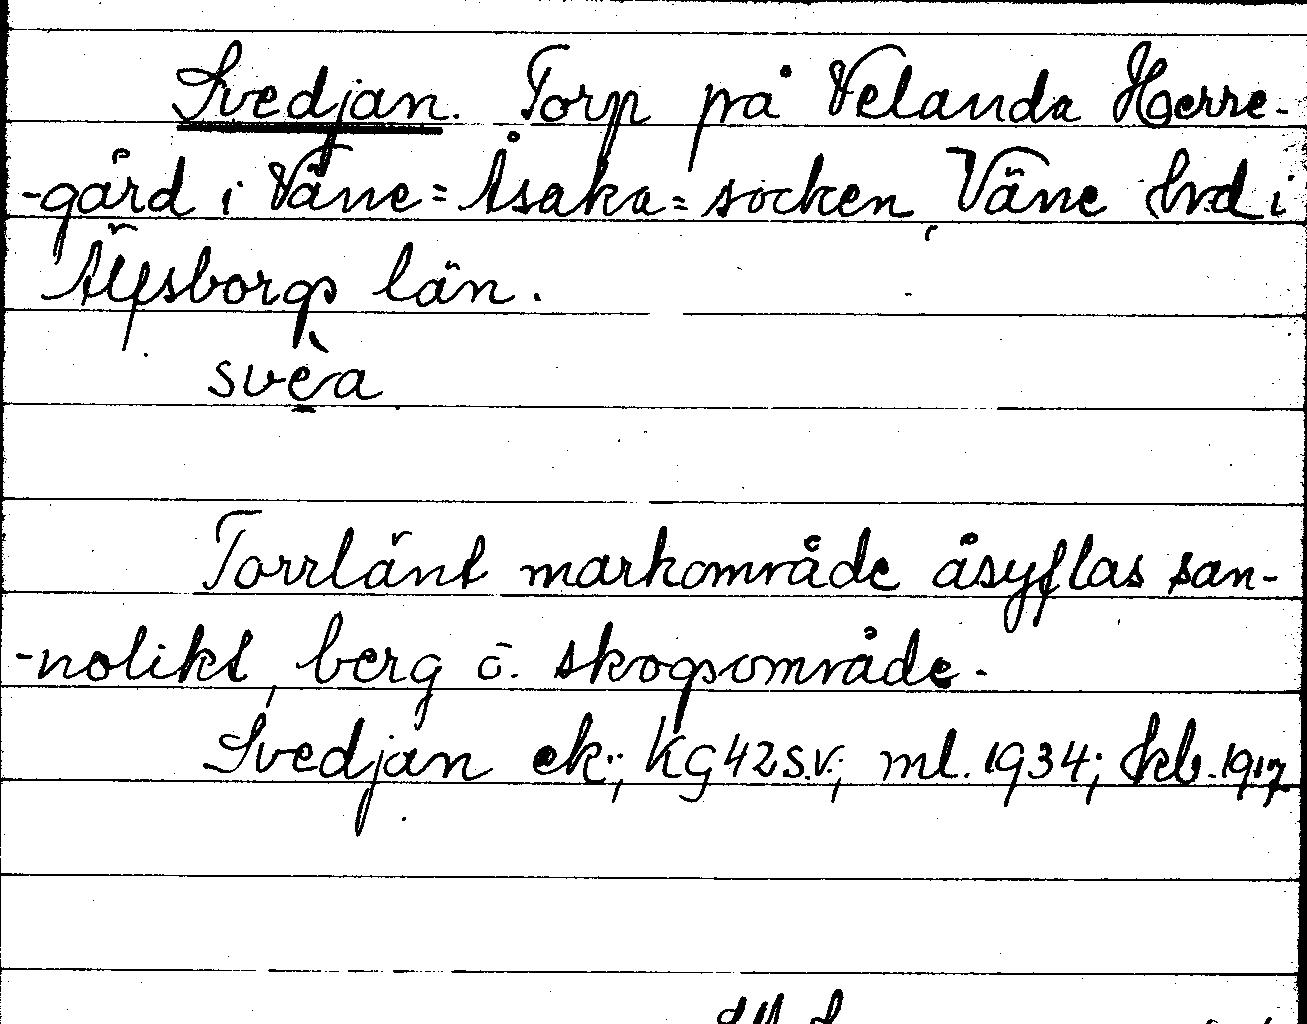 Svedjan. Torp på Velanda Herre-
-gård i Väne=Åsaka=socken, Väne hd i
Älfsborgs län.
svèa
Torrlänt markområde åsyftas san-
-nolikt, berg o. skogsområde.
Svedjan ek.; KG42s.v.; ml. 1934; kb. 1917